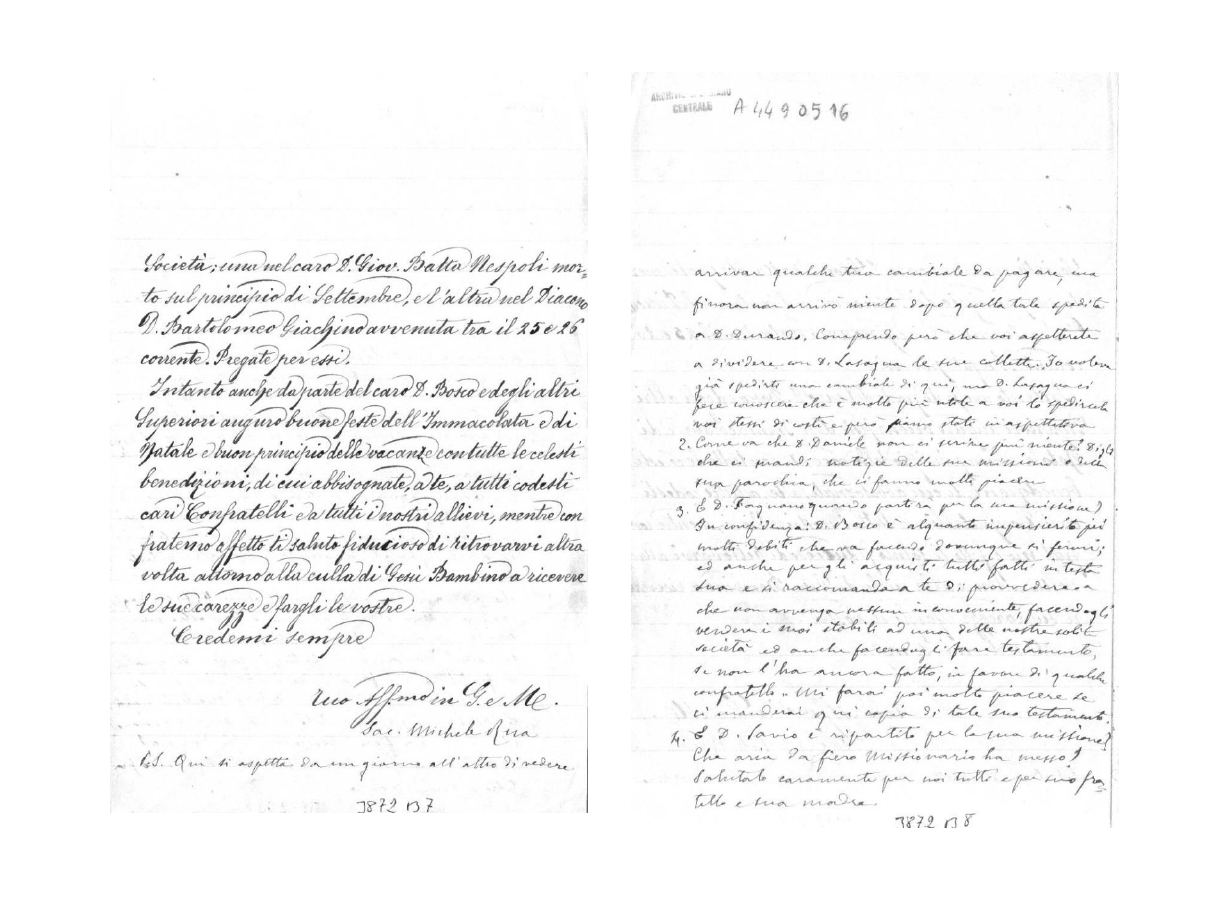 Società; una nel caro D. Giov. Batta Nespoli mor=
to sul principio di Settembre, e l'altra nel Diacono
D. Bartolomeo Giachino avvenuta tra il 25 e 26
corrente. Pregate per essi.
Intanto anche da parte del caro D. Bosco e degli altri
Superiori auguro buone feste dell'Immacolata e di
Natale e buon principio delle vacanze con tutte le celesti
benedizioni, di cui abbisognate, a te, a tutti codesti
cari Confratelli e a tutti i nostri allievi, mentre con
fraterno affetto ti saluto fiducioso di ritrovarvi altra
volta attorno alla culla di Gesù Bambino a ricevere
le sue carezze e fargli le vostre.
Credemi sempre
tuo Aff.mo in G. e M.
Sac. Michele Rua
P.S. Qui si aspetta da un giorno all'altro di vedere
3872 B 7
ARCHIVIO
CENTRALE
A 4490516
arrivar qualche tua cambiale da pagare, ma
finora non arrivò niente dopo quella tale spedita
a D. Durando. Comprendo però che voi aspetterete
a dividere con D. Lasagna le sue collette. Io voleva
già spedirti una cambiale di qui, ma D. Lasagna ci
fece conoscere che è molto più utile a voi lo spedircela
voi stessi di costì e però siamo stati in aspettativa
2. Come va che D. Daniele non ci scrive più niente? Digli
che ci mandi notizie della sua missione o della
sua parochia, che ci fanno molto piacere
3. E D. Fagnano quando partirà per la sua missione?
In confidenza: D. Bosco è alquanto impensierito pei
molti debiti che va facendo dovunque si fermi;
ed anche per gli acquisti tutti fatti in testa
sua e si raccomanda a te di provvedere a
che non avvenga nessun inconveniente, facendogli
vendere i suoi stabili ad una delle nostre solite
società ed anche facendogli fare testamento,
se non l'ha ancora fatto, in favore di qualche
confratello. Mi farai poi molto piacere se
ci manderai qui copia di tale suo testamento.
4. E D. Savio è ripartito per la sua missione?
Che aria da fiero Missionario ha messo!
Salutalo caramente per noi tutti e per suo fra=
tello e sua madre.
3872 B 8